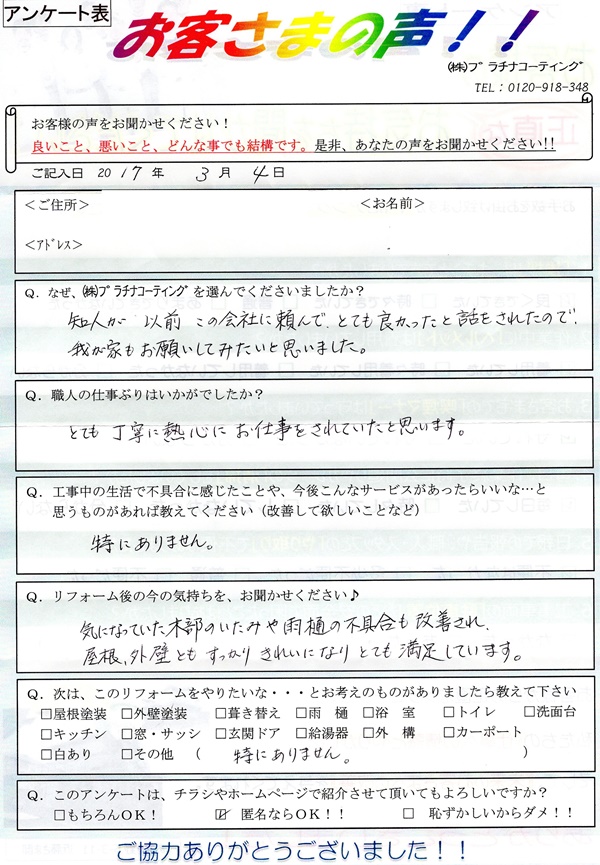 アンケート表
お客さまの声！！
㈱ﾌﾟﾗﾁﾅｺｰﾃｨﾝｸﾞ
TEL：0120-918-348
お客様の声をお聞かせください！
良いこと、悪いこと、どんな事でも結構です。是非、あなたの声をお聞かせください!!
ご記入日 2017年 3月 4日
＜ご住所＞ ＜お名前＞
＜ｱﾄﾞﾚｽ＞
Q．なぜ、㈱ﾌﾟﾗﾁﾅｺｰﾃｨﾝｸﾞを選んでくださいましたか？
知人が 以前 この会社に頼んで、とても良かったと話をされたので、
我が家もお願いしてみたいと思いました。
Q．職人の仕事ぶりはいかがでしたか？
とても 丁寧に熱心に お仕事をされていたと思います。
Q．工事中の生活で不具合に感じたことや、今後こんなサービスがあったらいいな…と
思うものがあれば教えてください（改善して欲しいことなど）
特にありません。
Q．リフォーム後の今の気持ちを、お聞かせください♪
気になっていた木部のいたみや雨樋の不具合も改善され、
屋根、外壁とも すっかり きれいになり とても 満足しています。
Q．次は、このリフォームをやりたいな・・・とお考えのものがありましたら教えて下さい
□屋根塗装 □外壁塗装 □葺き替え □雨 樋 □浴 室 □トイレ □洗面台
□キッチン □窓・サッシ □玄関ドア □給湯器 □外 構 □カーポート
□白あり □その他 （ 特にありません。 ）
Q．このアンケートは、チラシやホームページで紹介させて頂いてもよろしいですか？
□もちろんOK！ ☑ 匿名ならOK！！ □ 恥ずかしいからダメ！！
ご協力ありがとうございました！！